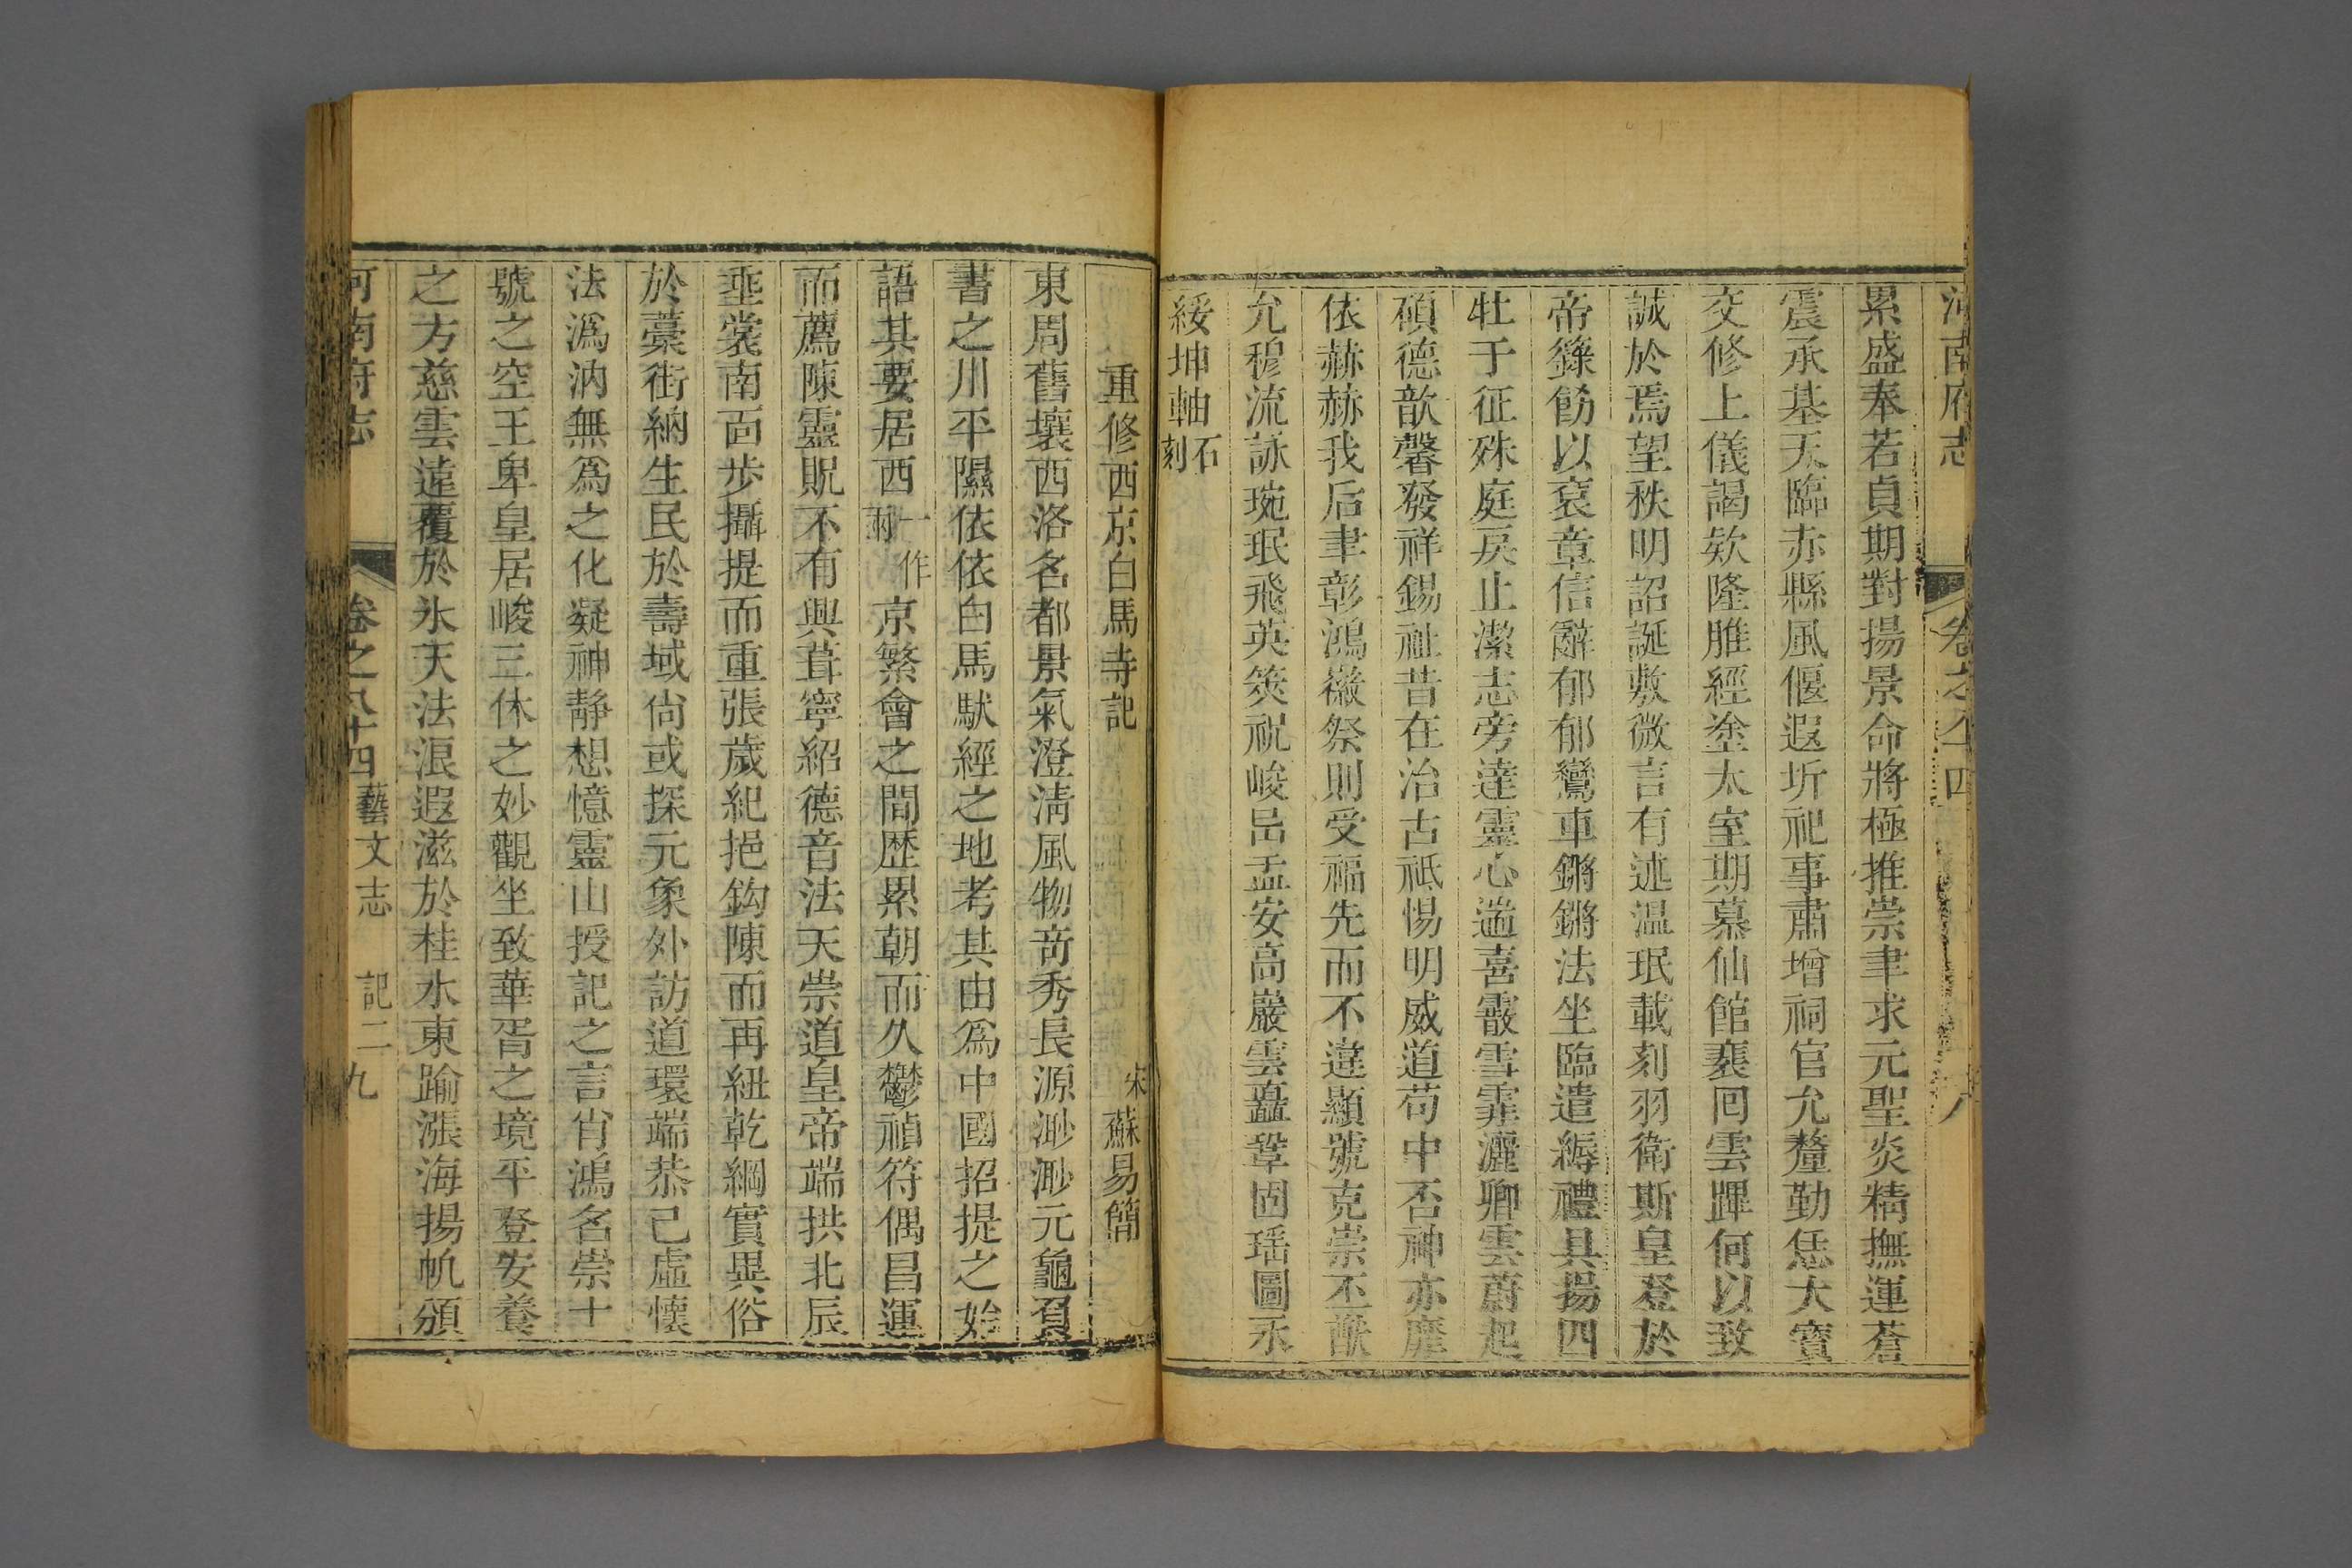 河南府志 卷之八十四 八
累盛奉若貞期對揚景命將極推崇聿求元聖炎精撫運蒼
震承基天臨赤縣風偃遐圻祀事肅增祠官允釐勤恁大寶
交修上儀謁欵隆脽經塗太室期慕仙館裵回雲蹕何以致
誠於焉望秩明詔誕敷微言有述溫珉載刻羽衛斯皇登於
帝籙飭以袞章信辭郁郁鸞車鏘鏘法坐臨遣縟禮具揚四
牡于征殊庭戾止潔志旁達靈心遄喜霰雪霏灑卿雲蔚起
碩德歆馨發祥錫祉昔在治古祇惕明威道苟中否神亦靡
依赫赫我后聿彰鴻徽祭則受福先而不違顯號克崇丕猷
允穆流詠琬珉飛英筴祝峻邑孟安高巖雲矗鞏固瑤圖永
綏坤軸石刻
重修西京白馬寺記 宋蘇易簡
東周舊壤西洛名都景氣澄淸風物奇秀長源渺渺元龜負
書之川平隰依依白馬馱經之地考其由為中國招提之始
語其要居西一作爾京繁會之間歷累朝而久鬱禎符偶昌運
而薦陳靈貺不有興葺寧紹德音法天崇道皇帝端拱北辰
垂裳南面步攝提而重張歲紀挹鈎陳而再紐乾綱實異俗
於藁街納生民於壽域尙或探元象外訪道環端恭己虛懷
法溈汭無為之化凝神靜想憶靈山授記之言肖鴻名崇十
號之空王卑皇居峻三休之妙觀坐致華胥之境平登安養
之方慈雲遠覆於氷天法浪遐滋於桂水東踰漲海揚帆頒
河南府志 卷之八十四 藝文志 記二 九